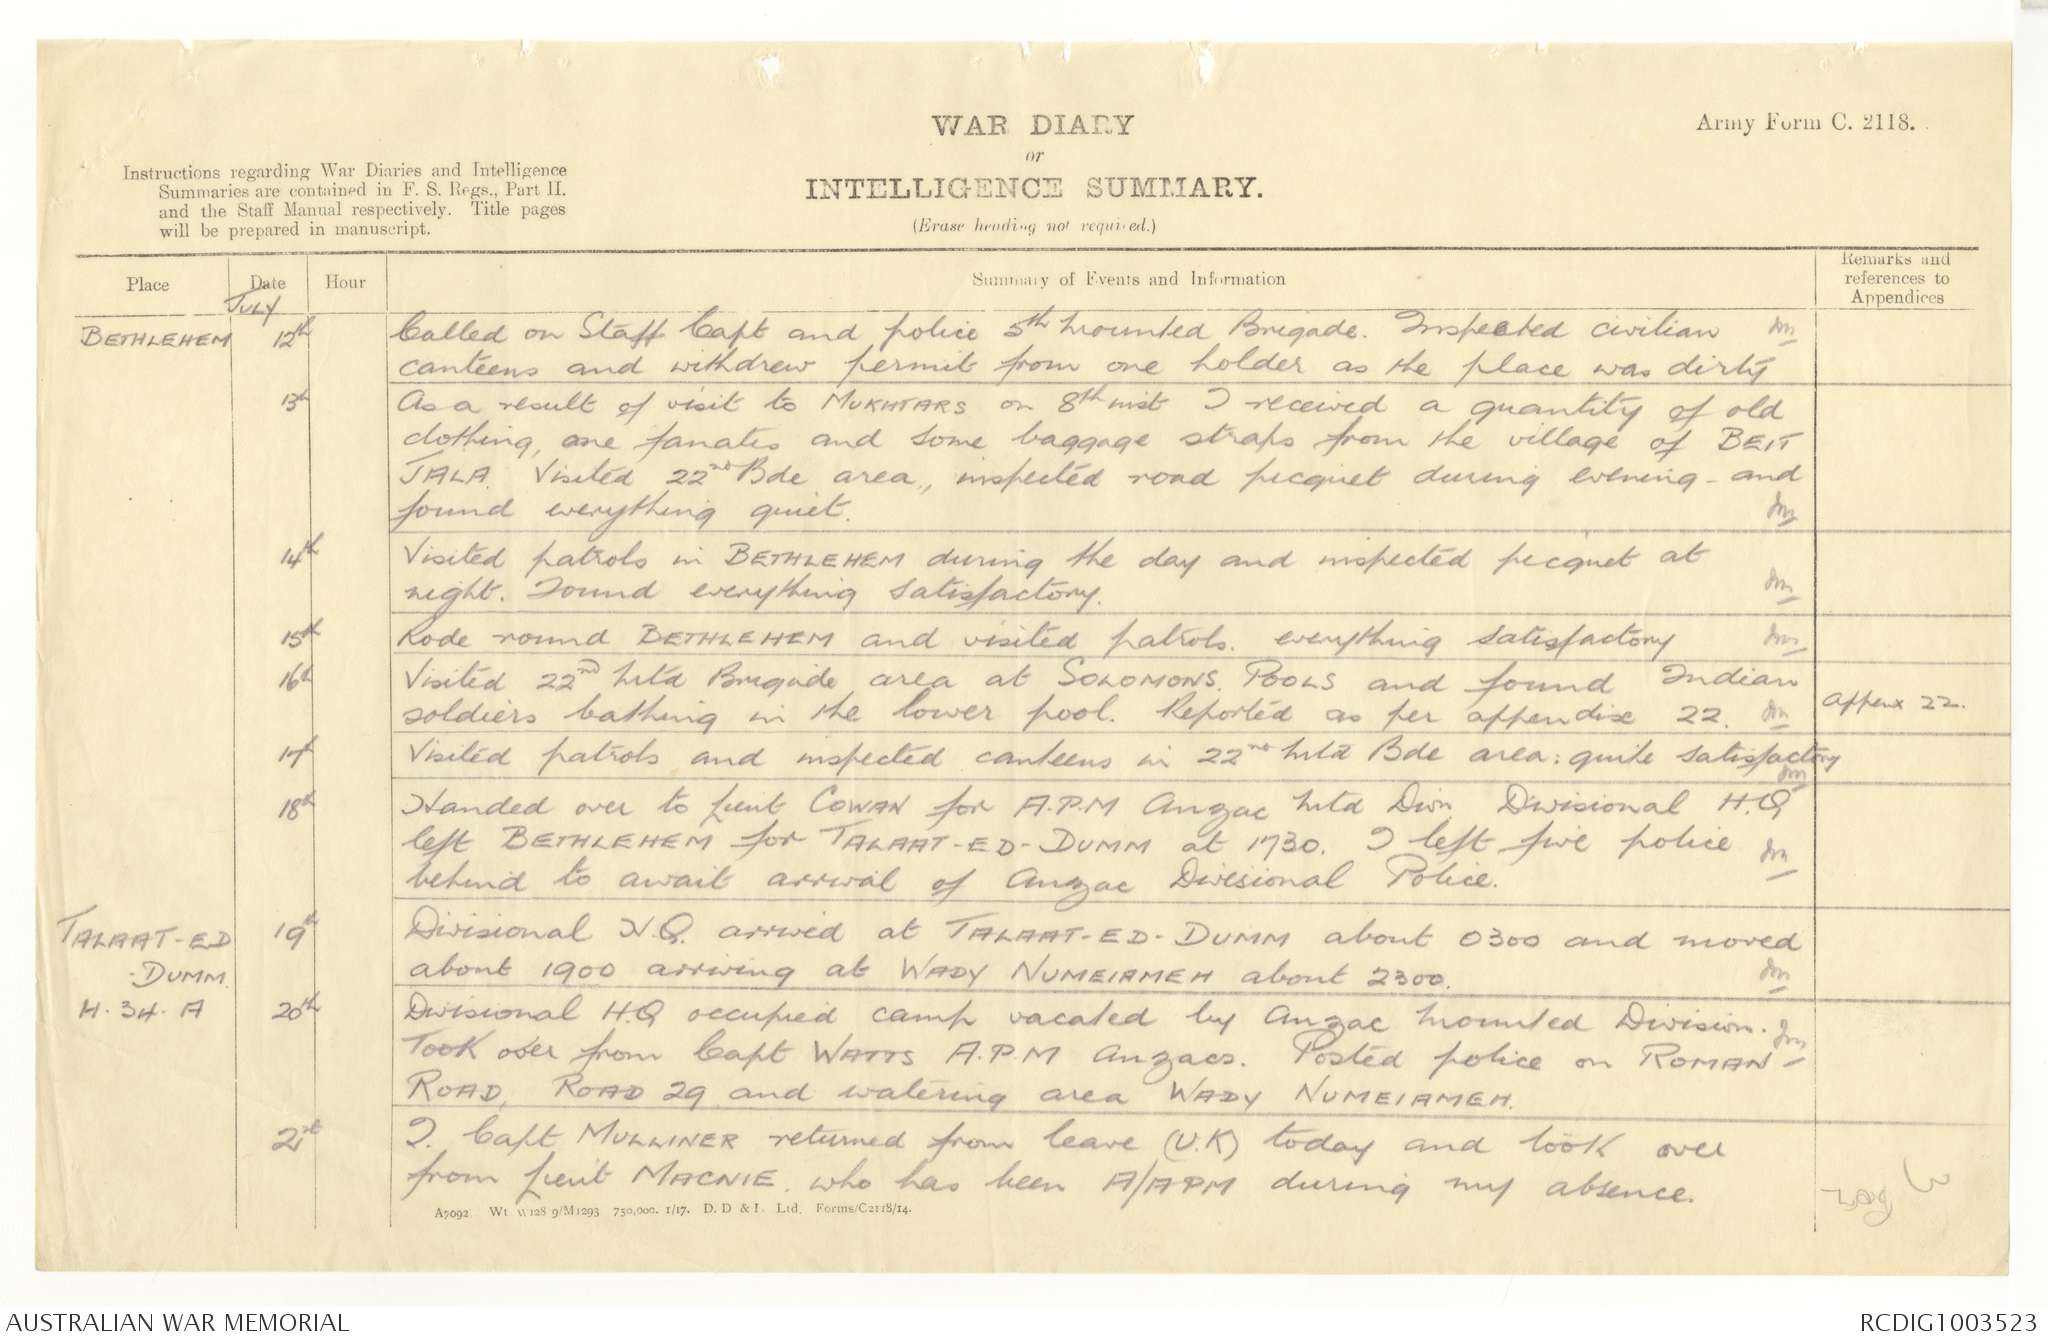 WAR DIARY
or
INTELLIGENCE SUMMARY.
(Erase heading not required.)
Army Form C. 2118.
Instructions regarding War Diaries and Intelligence
Summaries are contained in F. S. Regs., Part II.
and the Staff Manual respectively. Title pages
will be prepared in manuscript.
Place Date Hour Summary of Events and Information Remarks and references to Appendices
JULY
BETHLEHEM 12th Called on Staff Capt and police 5th Mounted Brigade. Inspected civilian
canteens and withdrew permit from one holder as the place was dirty
13th As a result of visit to MUKHTARS on 8th inst I received a quantity of old
clothing, one fanatis and some baggage straps from the village of BEIT
JALA. Visited 22nd Bde area, inspected road picquet during evening - and
found everything quiet.
14th Visited patrols in BETHLEHEM during the day and inspected picquet at
night. Found everything satisfactory.
15th Rode round BETHLEHEM and visited patrols. everything satisfactory
16th Visited 22nd Mtd Brigade area at SOLOMONS POOLS and found Indian
soldiers bathing in the lower pool. Reported as per appendix 22. Appenx 22.
17th Visited patrols and inspected canteens in 22nd Mtd Bde area: quite satisfactory
18th Handed over to Lieut COWAN for A.P.M Anzac Mtd Divn. Divisional H.Q
left BETHLEHEM for TALAAT-ED-DUMM at 1730. I left five police
behind to await arrival of Anzac Divisional Police.
TALAAT-ED
-DUMM. 19th Divisional H.Q. arrived at TALAAT-ED-DUMM about 0300 and moved
about 1900 arriving at WADY NUMEIAMEH about 2300.
H.34.A 20th Divisional H.Q occupied camp vacated by Anzac Mounted Division.
Took over from Capt WATTS A.P.M Anzacs. Posted police on ROMAN
ROAD, ROAD 29 and watering area WADY NUMEIAMEH.
21st I. Capt MULLINER returned from leave (U.K) today and took over
from Lieut MACNIE. who has been A/APM during my absence.
A7092. Wt. W128 9/M1293 750,000. 1/17. D. D & L. Ltd. Forms/C2118/14.
AUSTRALIAN WAR MEMORIAL
RCDIG1003523